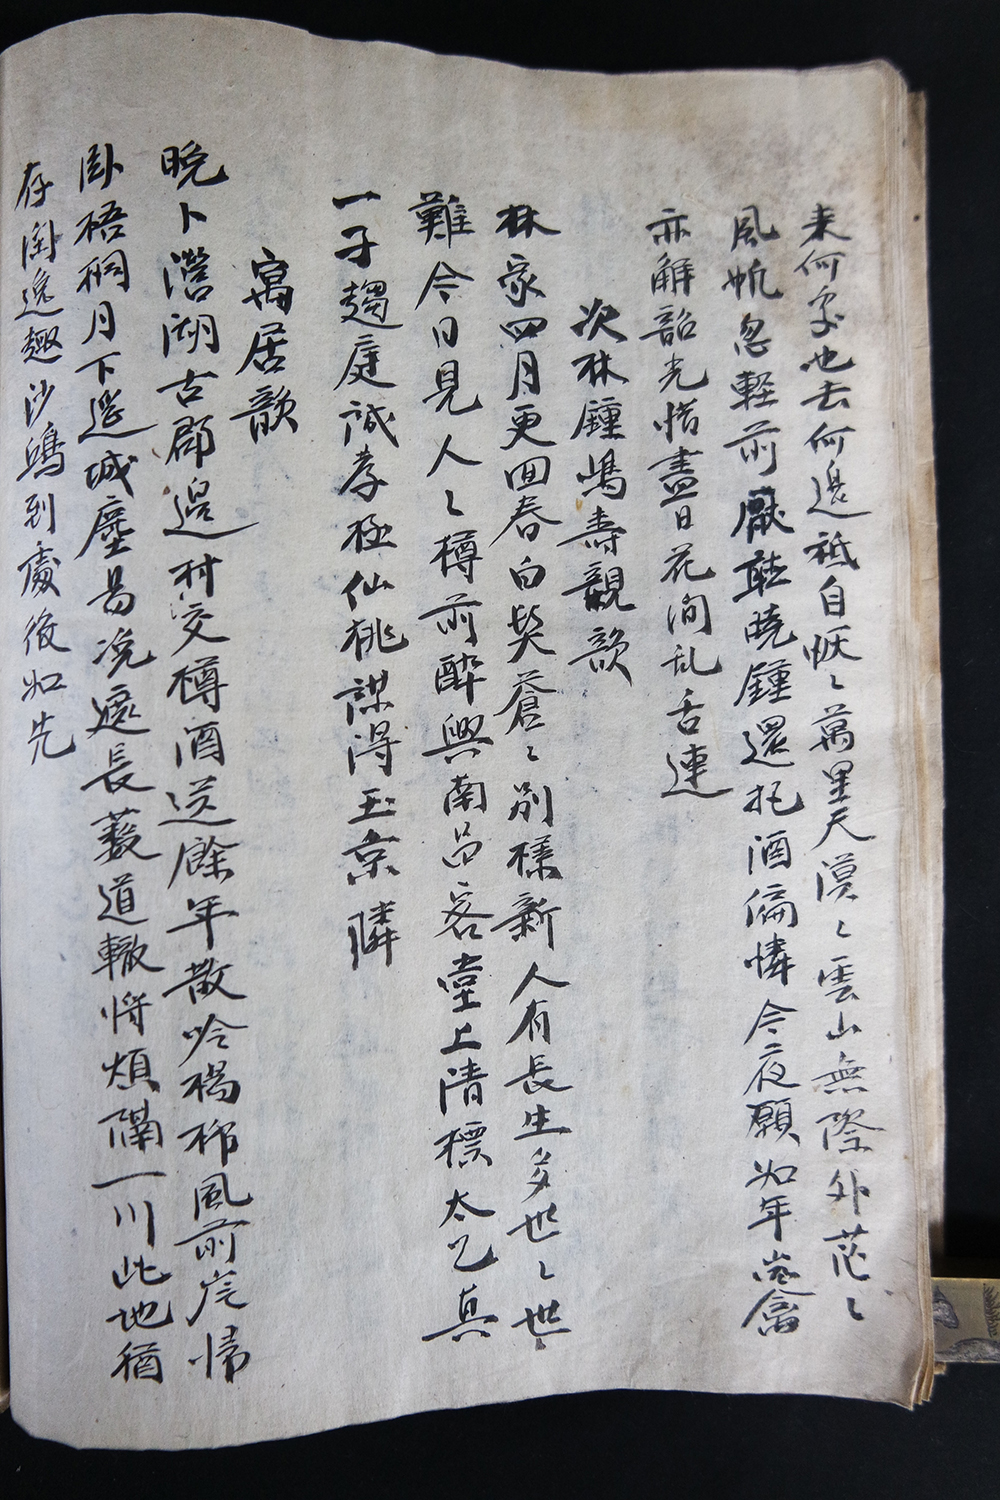 来何處也去何邊祗自恹〻萬里天漠〻雲山無際外茫〻
風帆忽輕前厭聽曉鍾還抱酒偏憐今夜願如年幽禽
亦解韶光惜盡日花間乱舌連
次林鍾嶋壽親韻
林家四月更回春白髮蒼〻別樣新人有長生多世〻世
難今日見人〻樽前醉興南呂客堂上清標太乙真
一子趨庭誠孝極仙桃謀淂玉京隣
寓居韻
晚卜澄湖古郡邊村交樽酒送餘年散吟楊柳風前岸情
臥梧桐月下筵城塵昜浼遠長藪道轍將煩隔一川此地猶
存閑逸趣沙鷗到處後如先